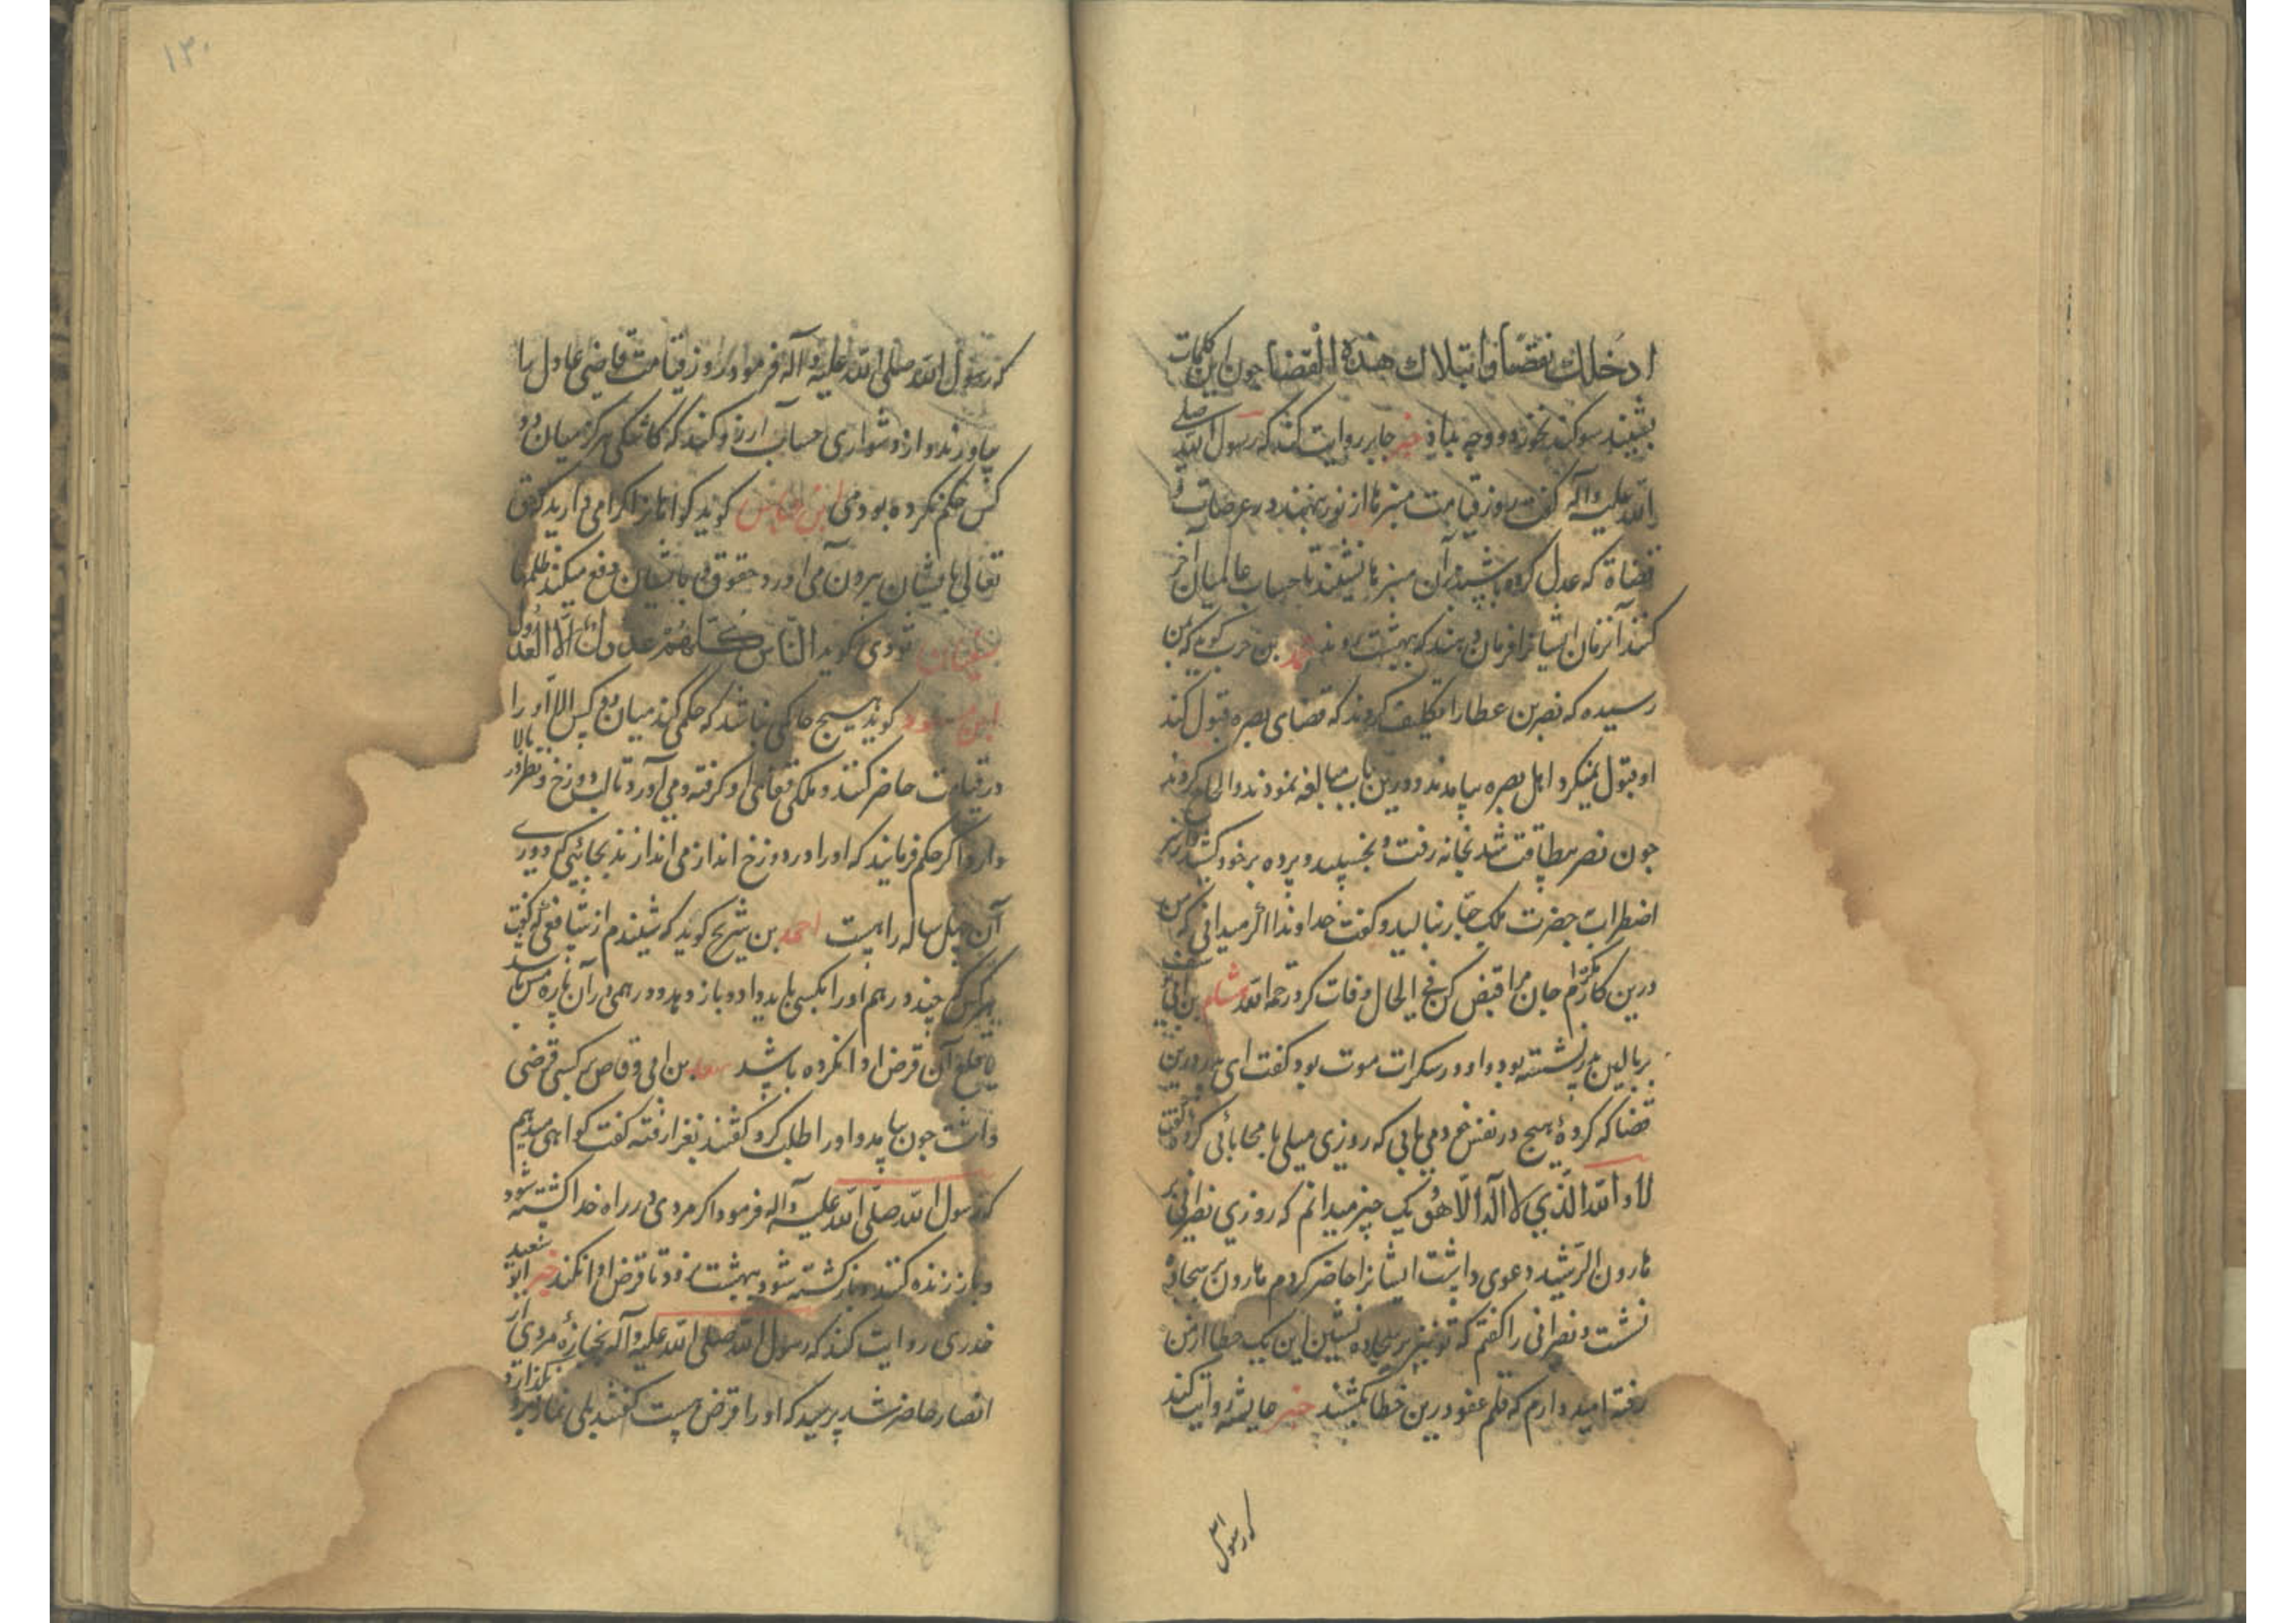 ادخلك نقضا وابتلاك هذه القضا چون این کلمات
بشنید سوکند بخورد و وجه بداد خبر جابر روایت کند که رسول الله صلی
الله علیه وآله گفت روز قیامت منبرها از نور بنهند در عرصات و
قضاة که عدل کرده باشند بر آن منبرها نشینند تا حساب عالمیان آخر
کنند آنزمان ایشانرا فرمان دهند که ببهشت روند محمد بن حرب گوید که بمن
رسیده که نصر بن عطا را تکلیف کردند که قضای بصره قبول کند
او قبول نمیکرد اهل بصره بیامدند و درین باب مبالغه نمودند و الحاح کردند
چون نصر بیطاقت شد بخانه رفت و بخسپید و پرده بر خود کشید و از سر
اضطراب بحضرت ملک جبار بنالید و گفت خداوندا اگر میدانی که من
درین کار مکرهم جان مرا قبض کن فی الحال وفات کرد رحمه الله هشام بن ابی
بر بالین پدر نشسته بود و او در سکرات موت بود گفت ای پدر درین
قضا که کردهٔ هیچ در نفس خود می یابی که روزی میلی یا محابائی کرده گفت
لا والله الذي لا اله الا هو یک چیز میدانم که روزی نصرانی بر
هارون الرشید دعوی داشت ایشانرا حاضر کردم هارون بر سجاده
نشست و نصرانی را گفتم که تو نیز بر سجاده نشین این یک خطا از من
رفته امید دارم که قلم عفو درین خطا بکشند خبر عایشه روایت کند
که رسول
۱۲۰
که رسول الله صلی الله علیه وآله فرمود که روز قیامت قاضی عادل را
بیاورند و از دشواری حساب آرزو کند که کاشکی هرگز میان دو
کس حکم نکرده بودمی ابن عباس گوید گواهانرا گرامی دارید که حق
تعالی بایشان بیرون می آورد حقوق و بایشان دفع میکند ظلمها
سفیان ثوری گوید الناس کلهم عدول الا العدول
ابن مسعود گوید هیچ حاکمی نباشد که حکم کند میان دو کس الا او را
در قیامت حاضر کنند و ملکی قفای او گرفته و می آورد تا لب دوزخ و نظر در بالا
دارد اگر حکم فرمایند که او را در دوزخ انداز می اندازند بجائیکه دوری
آن چهل ساله راهست احمد بن شریح گوید که شنیدم از شافعی که گفت
هر کس که چند درهم او را بکسی باید داد و باز دهد و درهمی در آن باره مس باشد
بمبلغ آن قرض ادا نکرده باشد سعد بن ابی وقاص بر کسی قرضی
داشت چون بیامد و او را طلب کرد گفتند بغزا رفته گفت گواهی میدهم
که رسول الله صلی الله علیه وآله فرمود اگر مردی در راه خدا کشته شود
و باز زنده کنند و باز کشته شود ببهشت نرود تا قرض ادا نکند خبر ابو سعید
خدری روایت کند که رسول الله صلی الله علیه وآله بجنازهٔ مردی از
انصار حاضر شد پرسید که او را قرض هست گفتند بلی نماز برو نگذارد